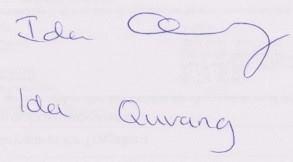 Ida
Ida Quvang